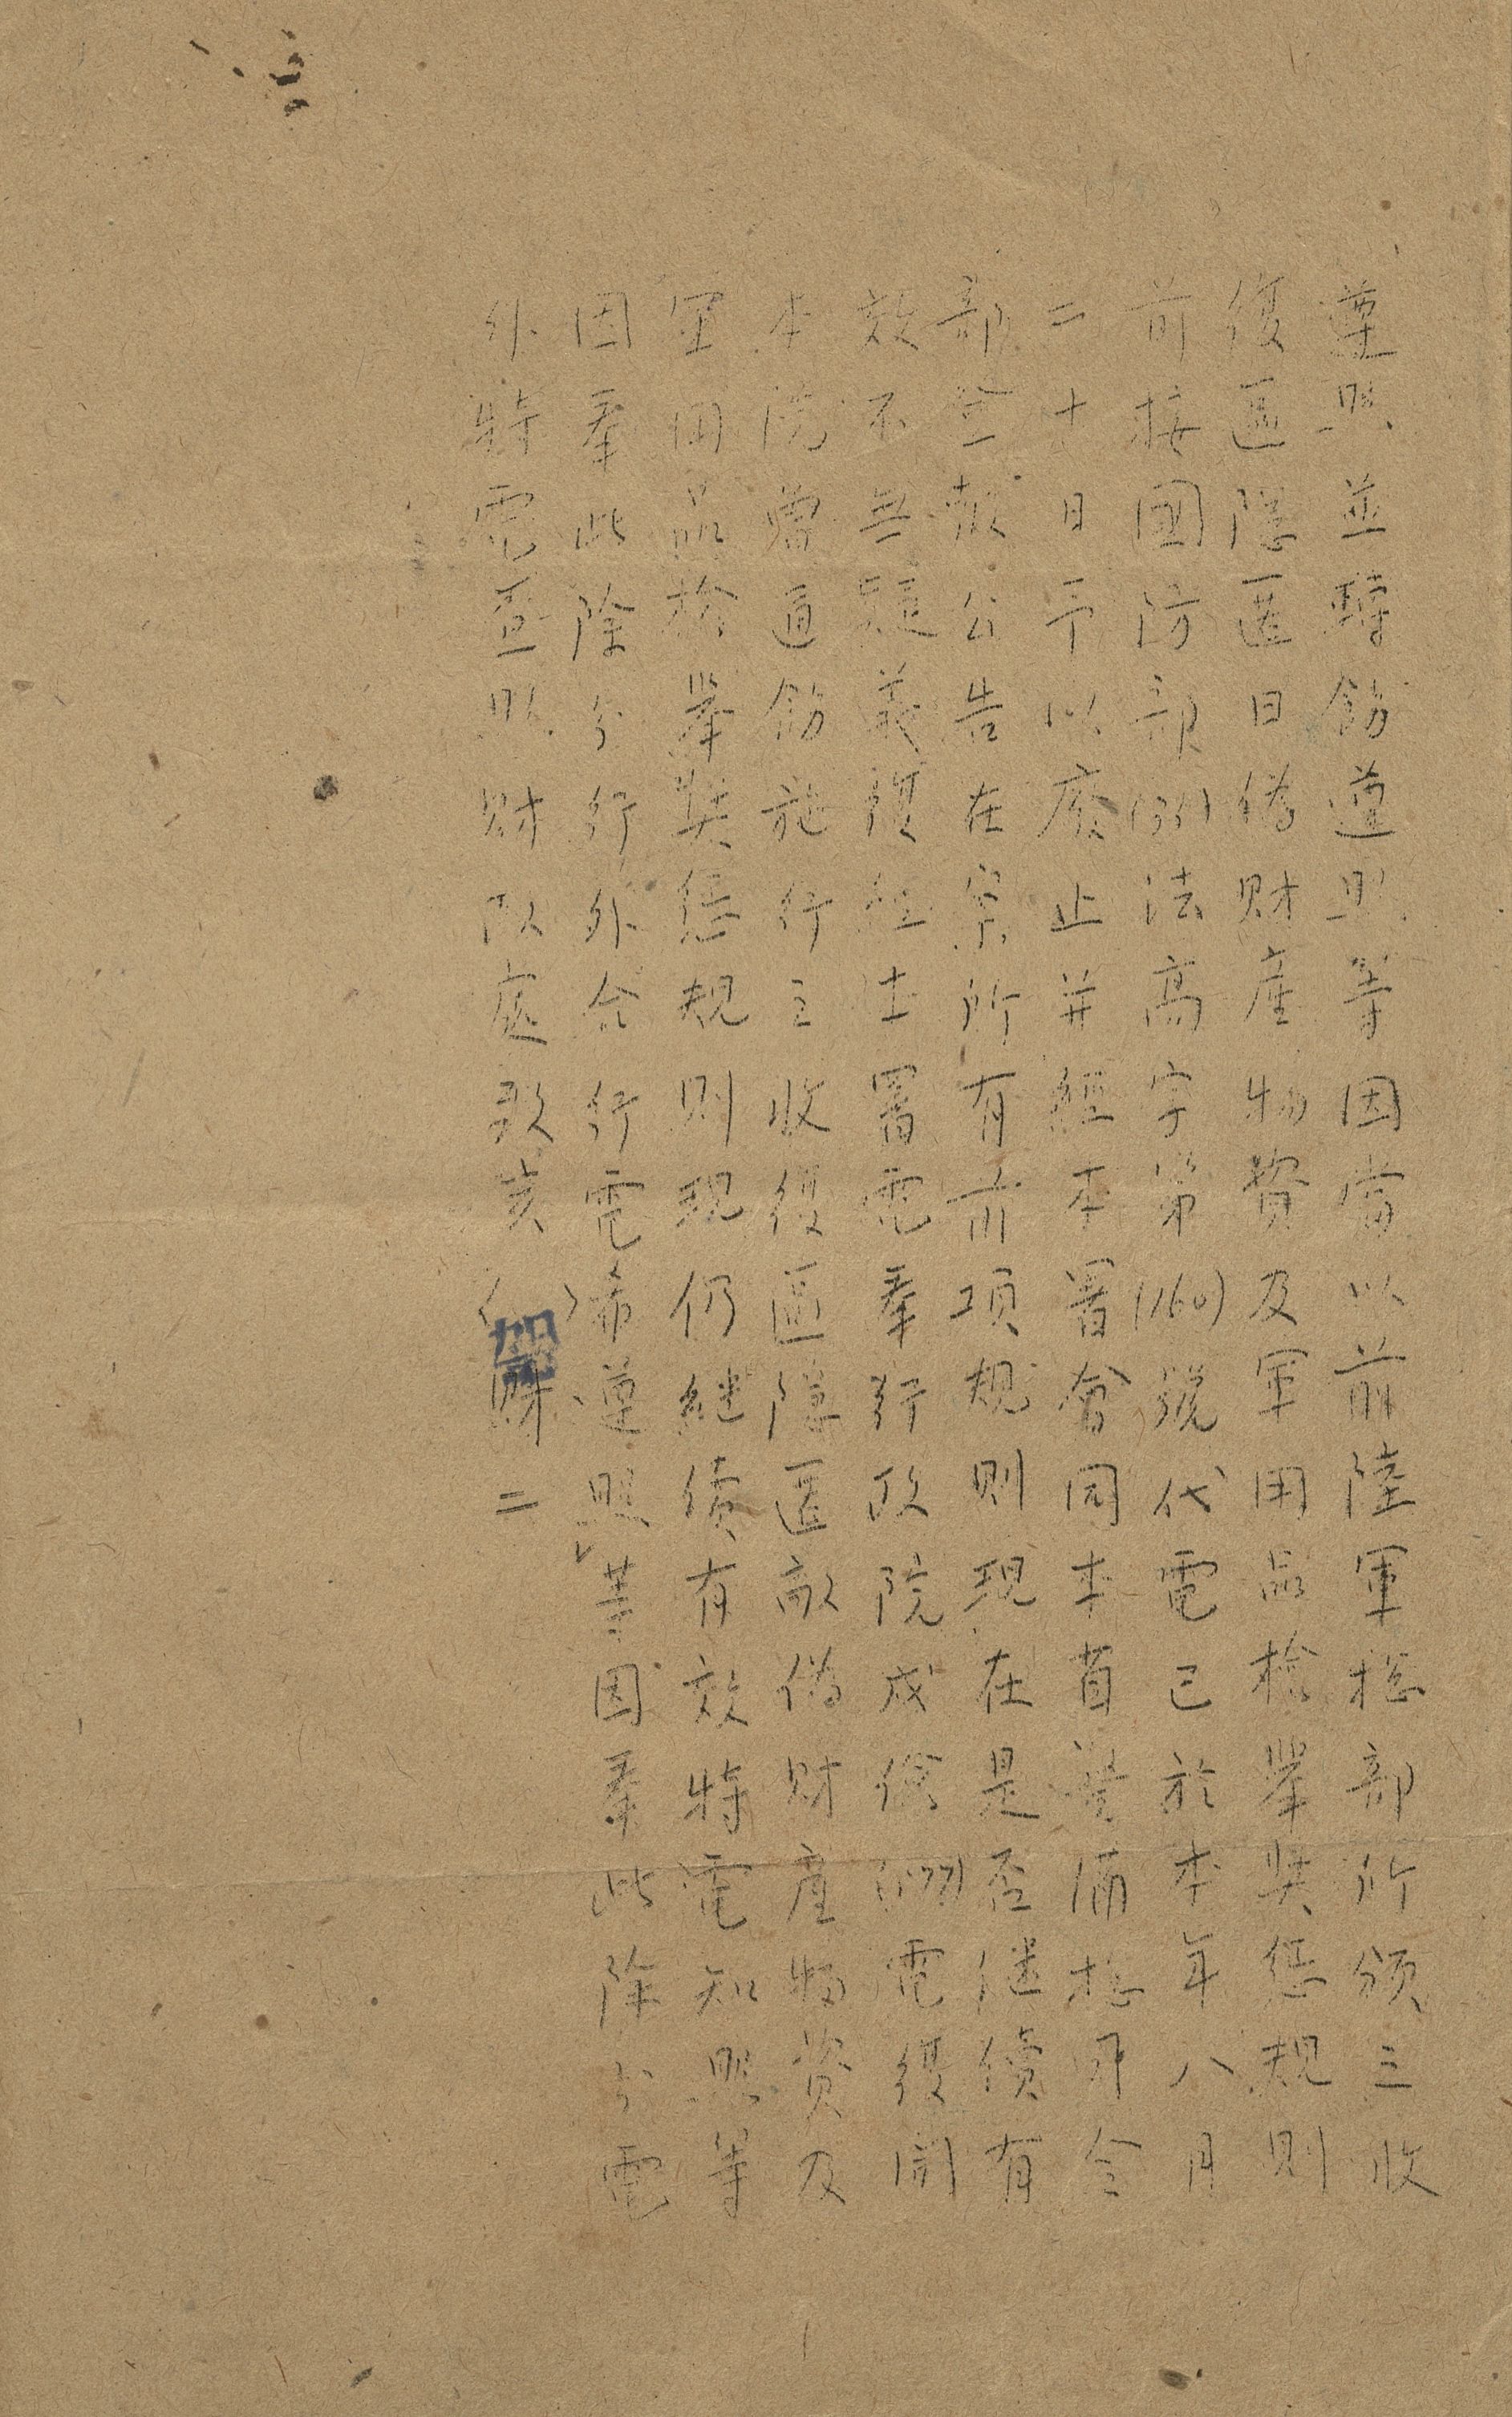 遵照並轉飭遵照等因當以前陸軍總部所頒三收
復區隱匿日偽財產物資及軍用品檢舉奬懲規則
前接國防部法高字第(160)號代電已於本年八月
二十日予以廢止并經本署會同本省警備總司令
部登報公告在案所有前項規則現在是否繼續有
效不無疑義復經本署電奉行政院戍儉電復開
本院前通飭施行之收復區隱匿敵偽財產物資及
軍用品檢舉奬懲規則現仍繼續有效特電知照等
因奉此除分行外合行電希遵照等因奉此除分電
外特電查照財政處歌亥()財二